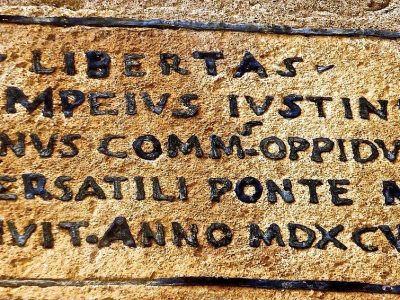 LIBERTAS
MPEIVS IVSTIN
NVS COMMS-OPPIDV
ERSATILI PONTE
IVIT·ANNO MDXCV